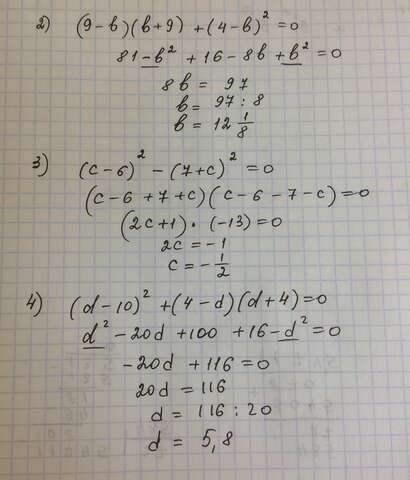 2) (9-b)(b+9) + (4-b)² = 0
81 - b² + 16 - 8b + b² = 0
8b = 97
b = 97 : 8
b = 12 1/8
3) (c-6)² - (7+c)² = 0
(c-6+7+c)(c-6-7-c) = 0
(2c+1) · (-13) = 0
2c = -1
c = - 1/2
4) (d-10)² + (4-d)(d+4) = 0
d² - 20d + 100 + 16 - d² = 0
-20d + 116 = 0
20d = 116
d = 116 : 20
d = 5,8